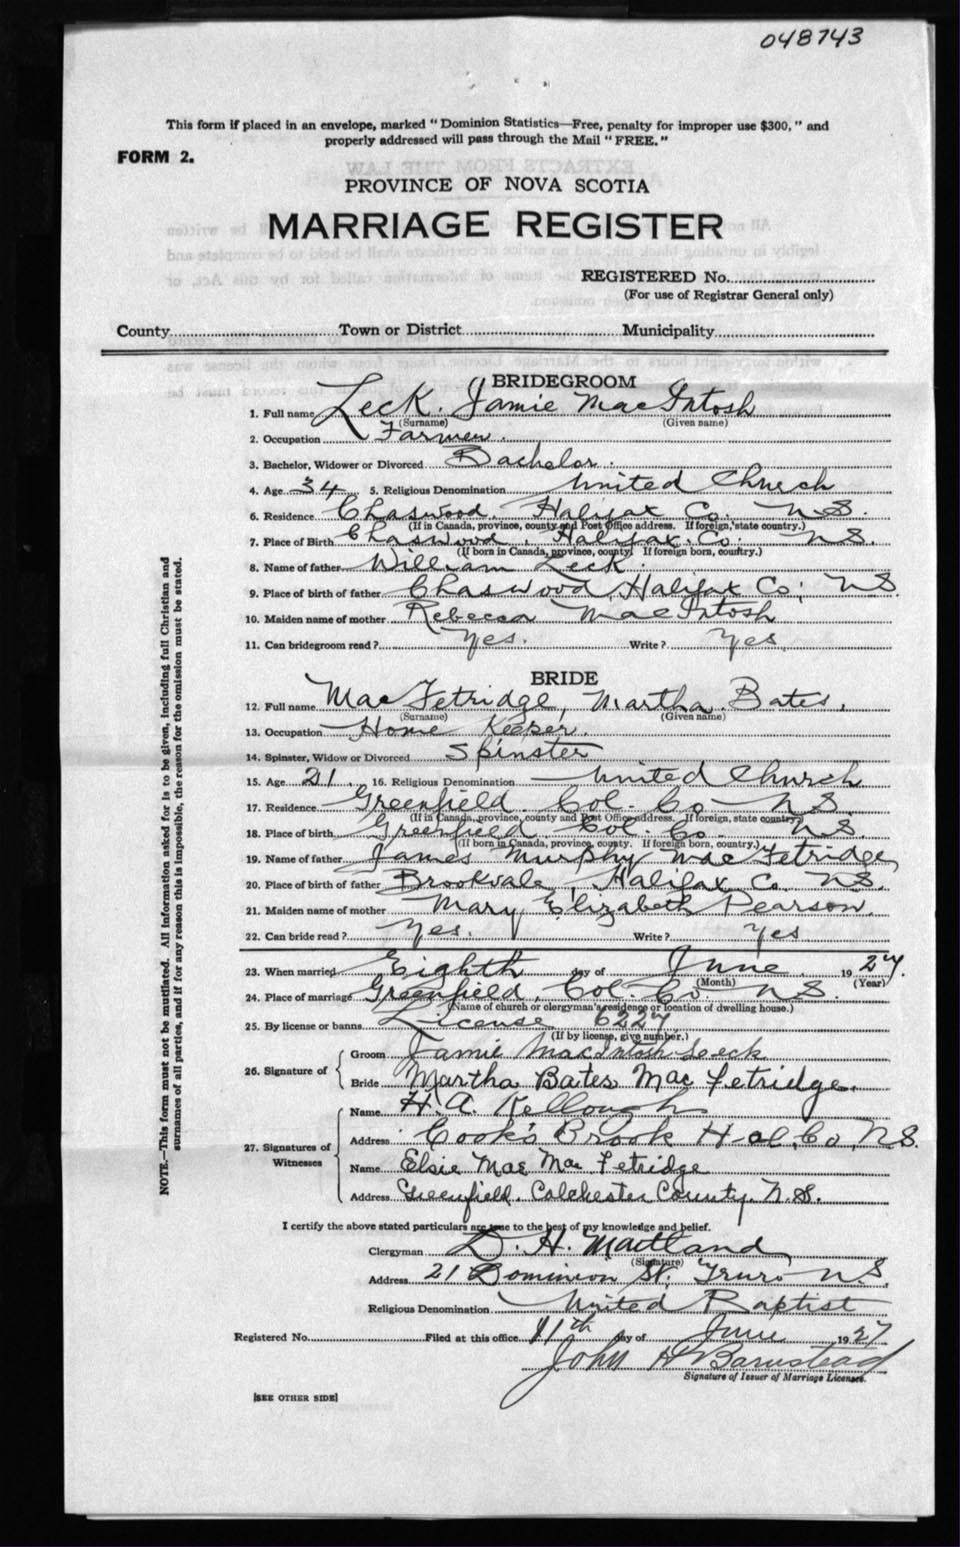 048743
This form if placed in an envelope, marked "Dominion Statistics—Free, penalty for improper use $300," and
properly addressed will pass through the Mail "FREE."
FORM 2.
PROVINCE OF NOVA SCOTIA
MARRIAGE REGISTER
REGISTERED No.
(For use of Registrar General only)
County Town or District Municipality
BRIDEGROOM
1. Full name Leck. Jamie MacIntosh
(Surname) (Given name)
2. Occupation Farmer.
3. Bachelor, Widower or Divorced Bachelor.
4. Age 34 5. Religious Denomination United Church
6. Residence Chaswood, Halifax Co. N.S.
(If in Canada, province, county and Post Office address. If foreign, state country.)
7. Place of Birth Chaswood, Halifax Co. N.S.
(If born in Canada, province, county. If foreign born, country.)
8. Name of father William Leck.
9. Place of birth of father Chaswood, Halifax Co; N.S.
10. Maiden name of mother Rebecca MacIntosh
11. Can bridegroom read? Yes. Write? Yes
BRIDE
12. Full name MacFetridge, Martha Bates.
(Surname) (Given name)
13. Occupation Home Keeper.
14. Spinster, Widow or Divorced Spinster
15. Age 21. 16. Religious Denomination United Church
17. Residence Greenfield Col. Co N.S.
(If in Canada, province, county and Post Office address. If foreign, state country)
18. Place of birth Greenfield Col. Co. N.S.
(If born in Canada, province, county. If foreign born, country.)
19. Name of father James Murphy MacFetridge
20. Place of birth of father Brookvale, Halifax Co. N.S.
21. Maiden name of mother Mary Elizabeth Pearson.
22. Can bride read? Yes. Write? Yes
23. When married Eighth day of June. 1927.
(Month) (Year)
24. Place of marriage Greenfield, Col. Co. N.S.
(Name of church or clergyman's residence or location of dwelling house.)
25. By license or banns License 6227
(If by license, give number.)
26. Signature of Groom Jamie MacIntosh Leeck
Bride Martha Bates MacFetridge.
27. Signatures of Witnesses
Name H. A. Kellough
Address Cook's Brook Hal, Co, N.S.
Name Elsie Mae MacFetridge
Address Greenfield. Colchester County. N.S.
I certify the above stated particulars are true to the best of my knowledge and belief.
Clergyman D. H. Maitland
(Signature)
Address 21 Dominion St, Truro N.S.
Religious Denomination United Baptist
Registered No. Filed at this office 11th day of June 1927
John H Barnstead
Signature of Issuer of Marriage Licenses.
[SEE OTHER SIDE]
NOTE.—This form must not be mutilated. All information asked for is to be given, including full Christian and
surnames of all parties, and if for any reason this is impossible, the reason for the omission must be stated.